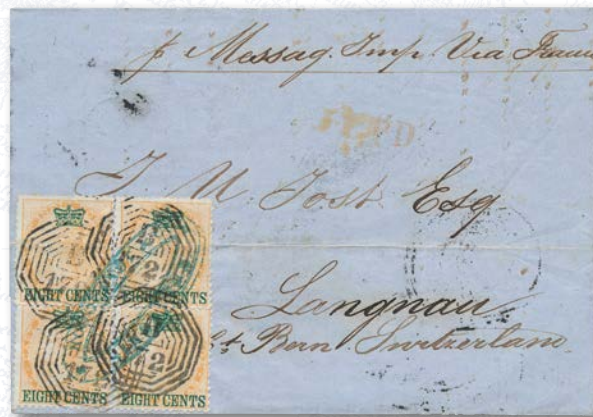 p Messag. Imp. Via France
J U Jost Esq
Langnau
Ct Bern Switzerland
EIGHT CENTS EIGHT CENTS
B
172
EIGHT CENTS EIGHT CENTS